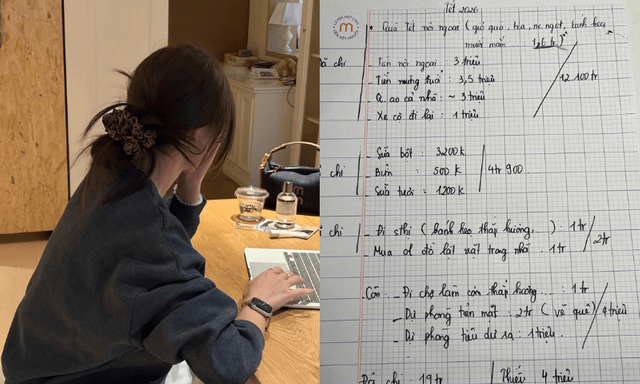 Tết 2026
• Quà Tết nội ngoại (giỏ quà, bia, nc ngọt, bánh kẹo,
1,6 tr)
Đã chi
- Tiền nội ngoại : 3 triệu
- Tiền mừng tuổi : 3,5 triệu
- Q áo cả nhà : ~ 3 triệu
- Xe cộ đi lại : 1 triệu
12.100tr
chi
- Sữa bột : 3200k
- Bỉm : 500k
- Sữa tươi : 1200k
4tr900
chi
- Đi sthi (bánh kẹo thắp hương, ) : 1tr
- Mua ol đồ lặt vặt trong nhà : 1tr
2tr
Còn : - Đi chợ làm cơm thắp hương ... : 1tr
- Dự phòng tiền mặt : 2tr (về quê)
- Dự phòng tiêu dư ra : 1 triệu
4 triệu
Đã chi : 19tr
Thiếu 4 triệu